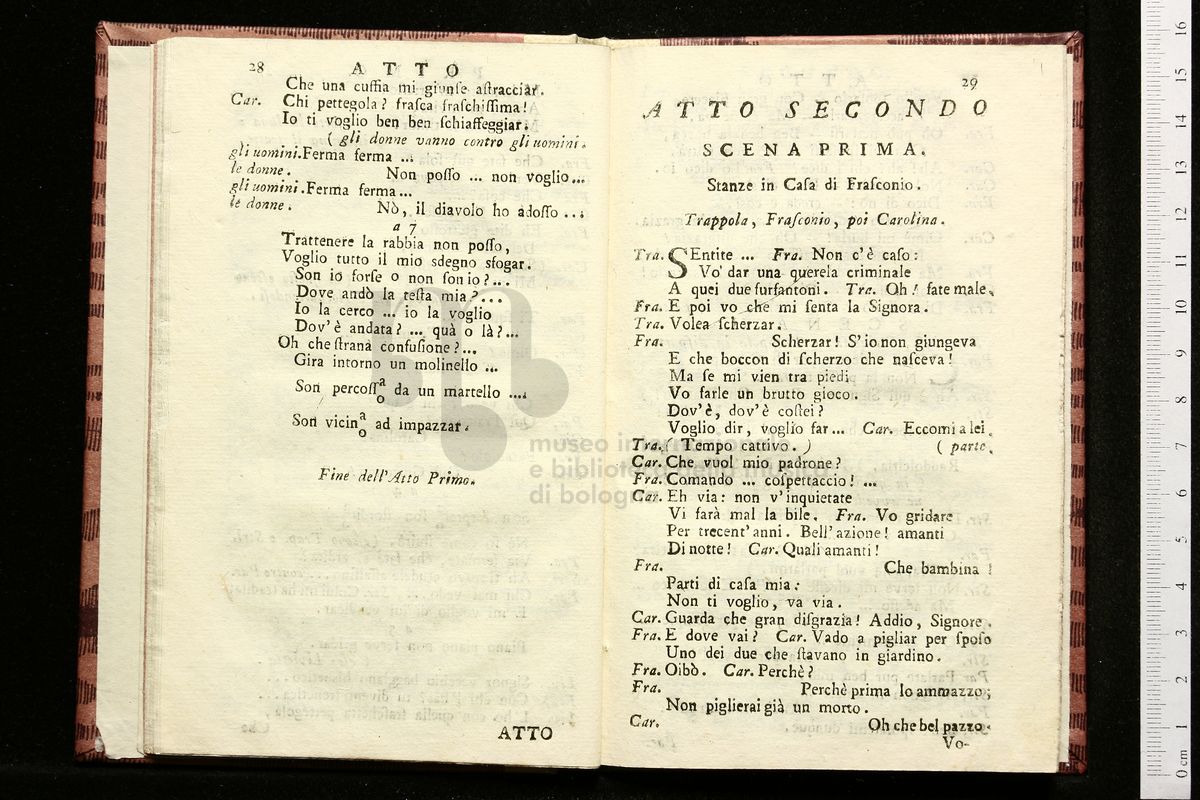 28 ATTO
Che una cuffia mi giunse aſtracciar.
Car. Chi pettegola? fraſca fraſchiſſima!
Io ti voglio ben ben ſchiaffeggiar.
( gli donne vanno contro gli uomini.
gli uomini. Ferma ferma ...
le donne. Non poſſo ... non voglio...
gli uomini. Ferma ferma...
le donne. Nò, il diavolo ho adoſſo ...
a 7
Trattenere la rabbia non poſſo,
Voglio tutto il mio sdegno sfogar.
Son io forſe o non ſon io?...
Dove andò la teſta mia?...
Io la cerco ... io la voglio
Dov'è andata? ... quà o là?...
Oh che ſtrana confuſione?...
Gira intorno un molinello ...
Son percoſſa/o da un martello ....
Son vicina/o ad impazzar.
Fine dell'Atto Primo.
ATTO
29
ATTO SECONDO
SCENA PRIMA.
Stanze in Caſa di Fraſconio.
Trappola, Fraſconio, poi Carolina.
Tra. SEntite ... Fra. Non c'è caſo:
Vo' dar una querela criminale
A quei due furfantoni. Tra. Oh! fate male,
Fra. E poi vo che mi ſenta la Signora.
Tra. Volea ſcherzar.
Fra. Scherzar! S'io non giungeva
E che boccon di ſcherzo che naſceva!
Ma ſe mi vien tra piedi
Vo farle un brutto gioco.
Dov'è, dov'è coſtei?
Voglio dir, voglio far... Car. Eccomi a lei.
Tra. ( Tempo cattivo. ) ( parte.
Car. Che vuol mio padrone?
Fra. Comando ... coſpettaccio! ...
Car. Eh via: non v'inquietate
Vi farà mal la bile. Fra. Vo gridare
Per trecent'anni. Bell'azione! amanti
Di notte! Car. Quali amanti!
Fra. Che bambina!
Parti di caſa mia:
Non ti voglio, va via.
Car. Guarda che gran diſgrazia! Addio, Signore.
Fra. E dove vai? Car. Vado a pigliar per ſpoſo
Uno dei due che ſtavano in giardino.
Fra. Oibò. Car. Perchè?
Fra. Perchè prima lo ammazzo;
Non piglierai già un morto.
Car. Oh che bel pazzo.
Vo-
museo internazionale
e biblioteca della musica
di bologna
16
15
14
13
12
11
10
9
8
7
6
5
4
3
2
1
0 cm